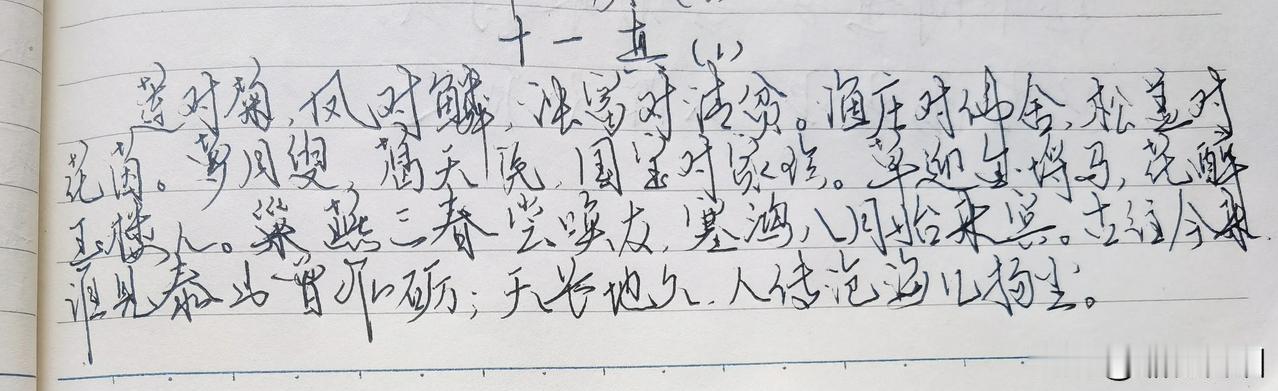 十一真(1)
莲对菊,凤对麟,浊富对清贫。渔庄对佛舍,松盖对
花茵。萝月叟,葛天民,国宝对家珍。草迎金埒马,花醉
玉楼人。巢燕三春尝唤友,塞鸿八月始来宾。古往今来,
谁见泰山曾作砺;天长地久,人传沧海几扬尘。